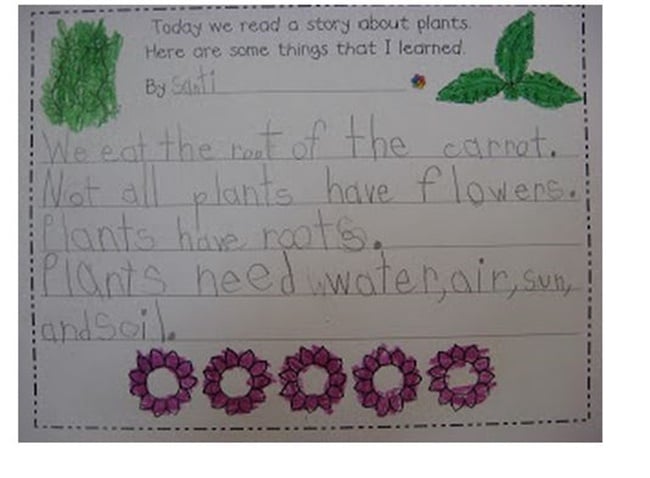 Today we read a story about plants.
Here are some things that I learned.
By Santi
We eat the root of the carrot.
Not all plants have flowers.
Plants have roots.
Plants need water, air, sun,
and soil.